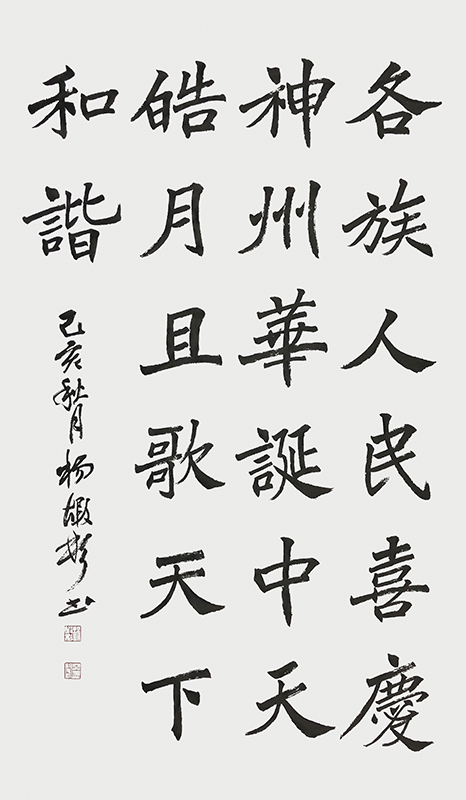 各族人民喜慶
神州華誕中天
皓月且歌天下
和諧
己亥秋月楊書